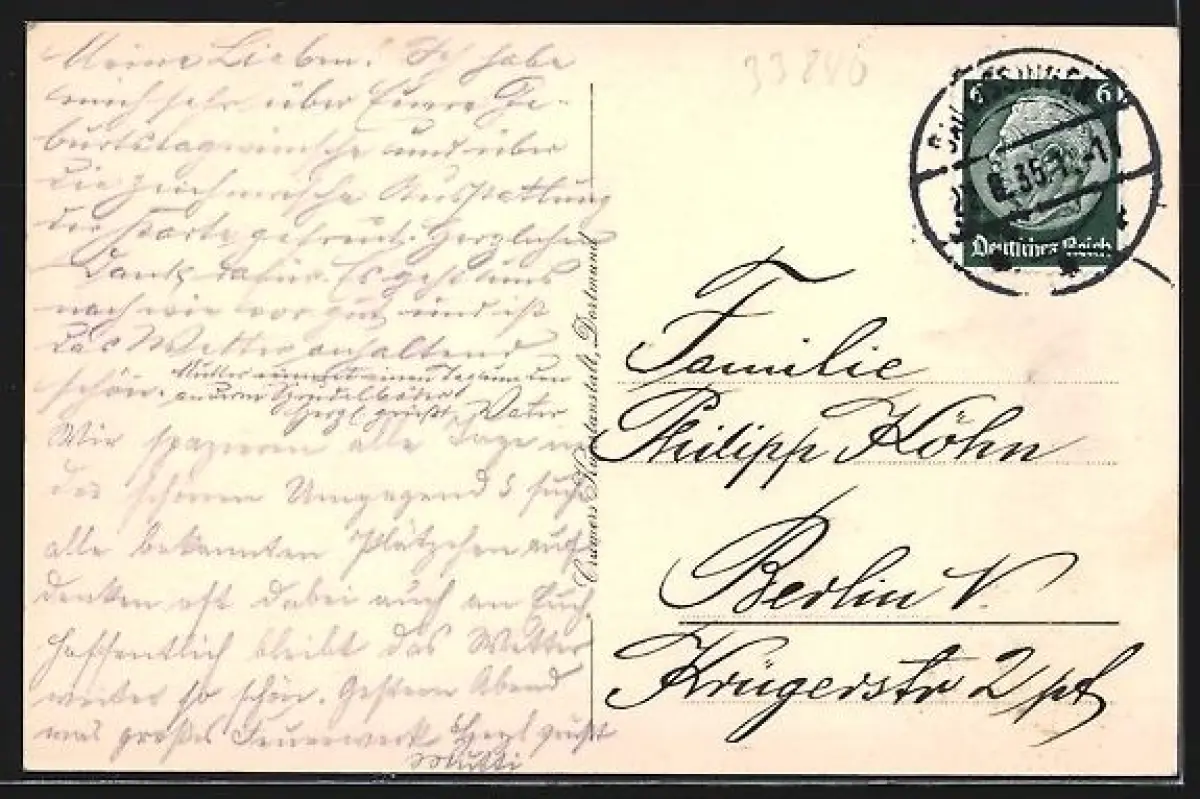 Meine Lieben! Ich habe
mich sehr über Eure Ge-
burtstagswünsche und über
die Ausstattung
der Karte gefreut. Herzlichen
Dank dafür. Es geht uns
nach wie vor gut und ist
das Wetter anhaltend
schön. Mutter nimmt einen
Sprudelbäder
Herzl. grüßt, Vater
Wir spazieren alle Tage in
der schönen Umgegend &
alle bekannten Plätzchen auf
denken oft dabei auch an Euch.
Hoffentlich bleibt das Wetter
weiter so schön. Gestern Abend
war großes Feuerwerk Herzl grüßt
Mutti
Cramers Kunstanstalt, Dortmund
33240
6 6
35.
Deutsches Reich
Familie
Philipp Köhn
Berlin N.
Krügerstr 2 pt